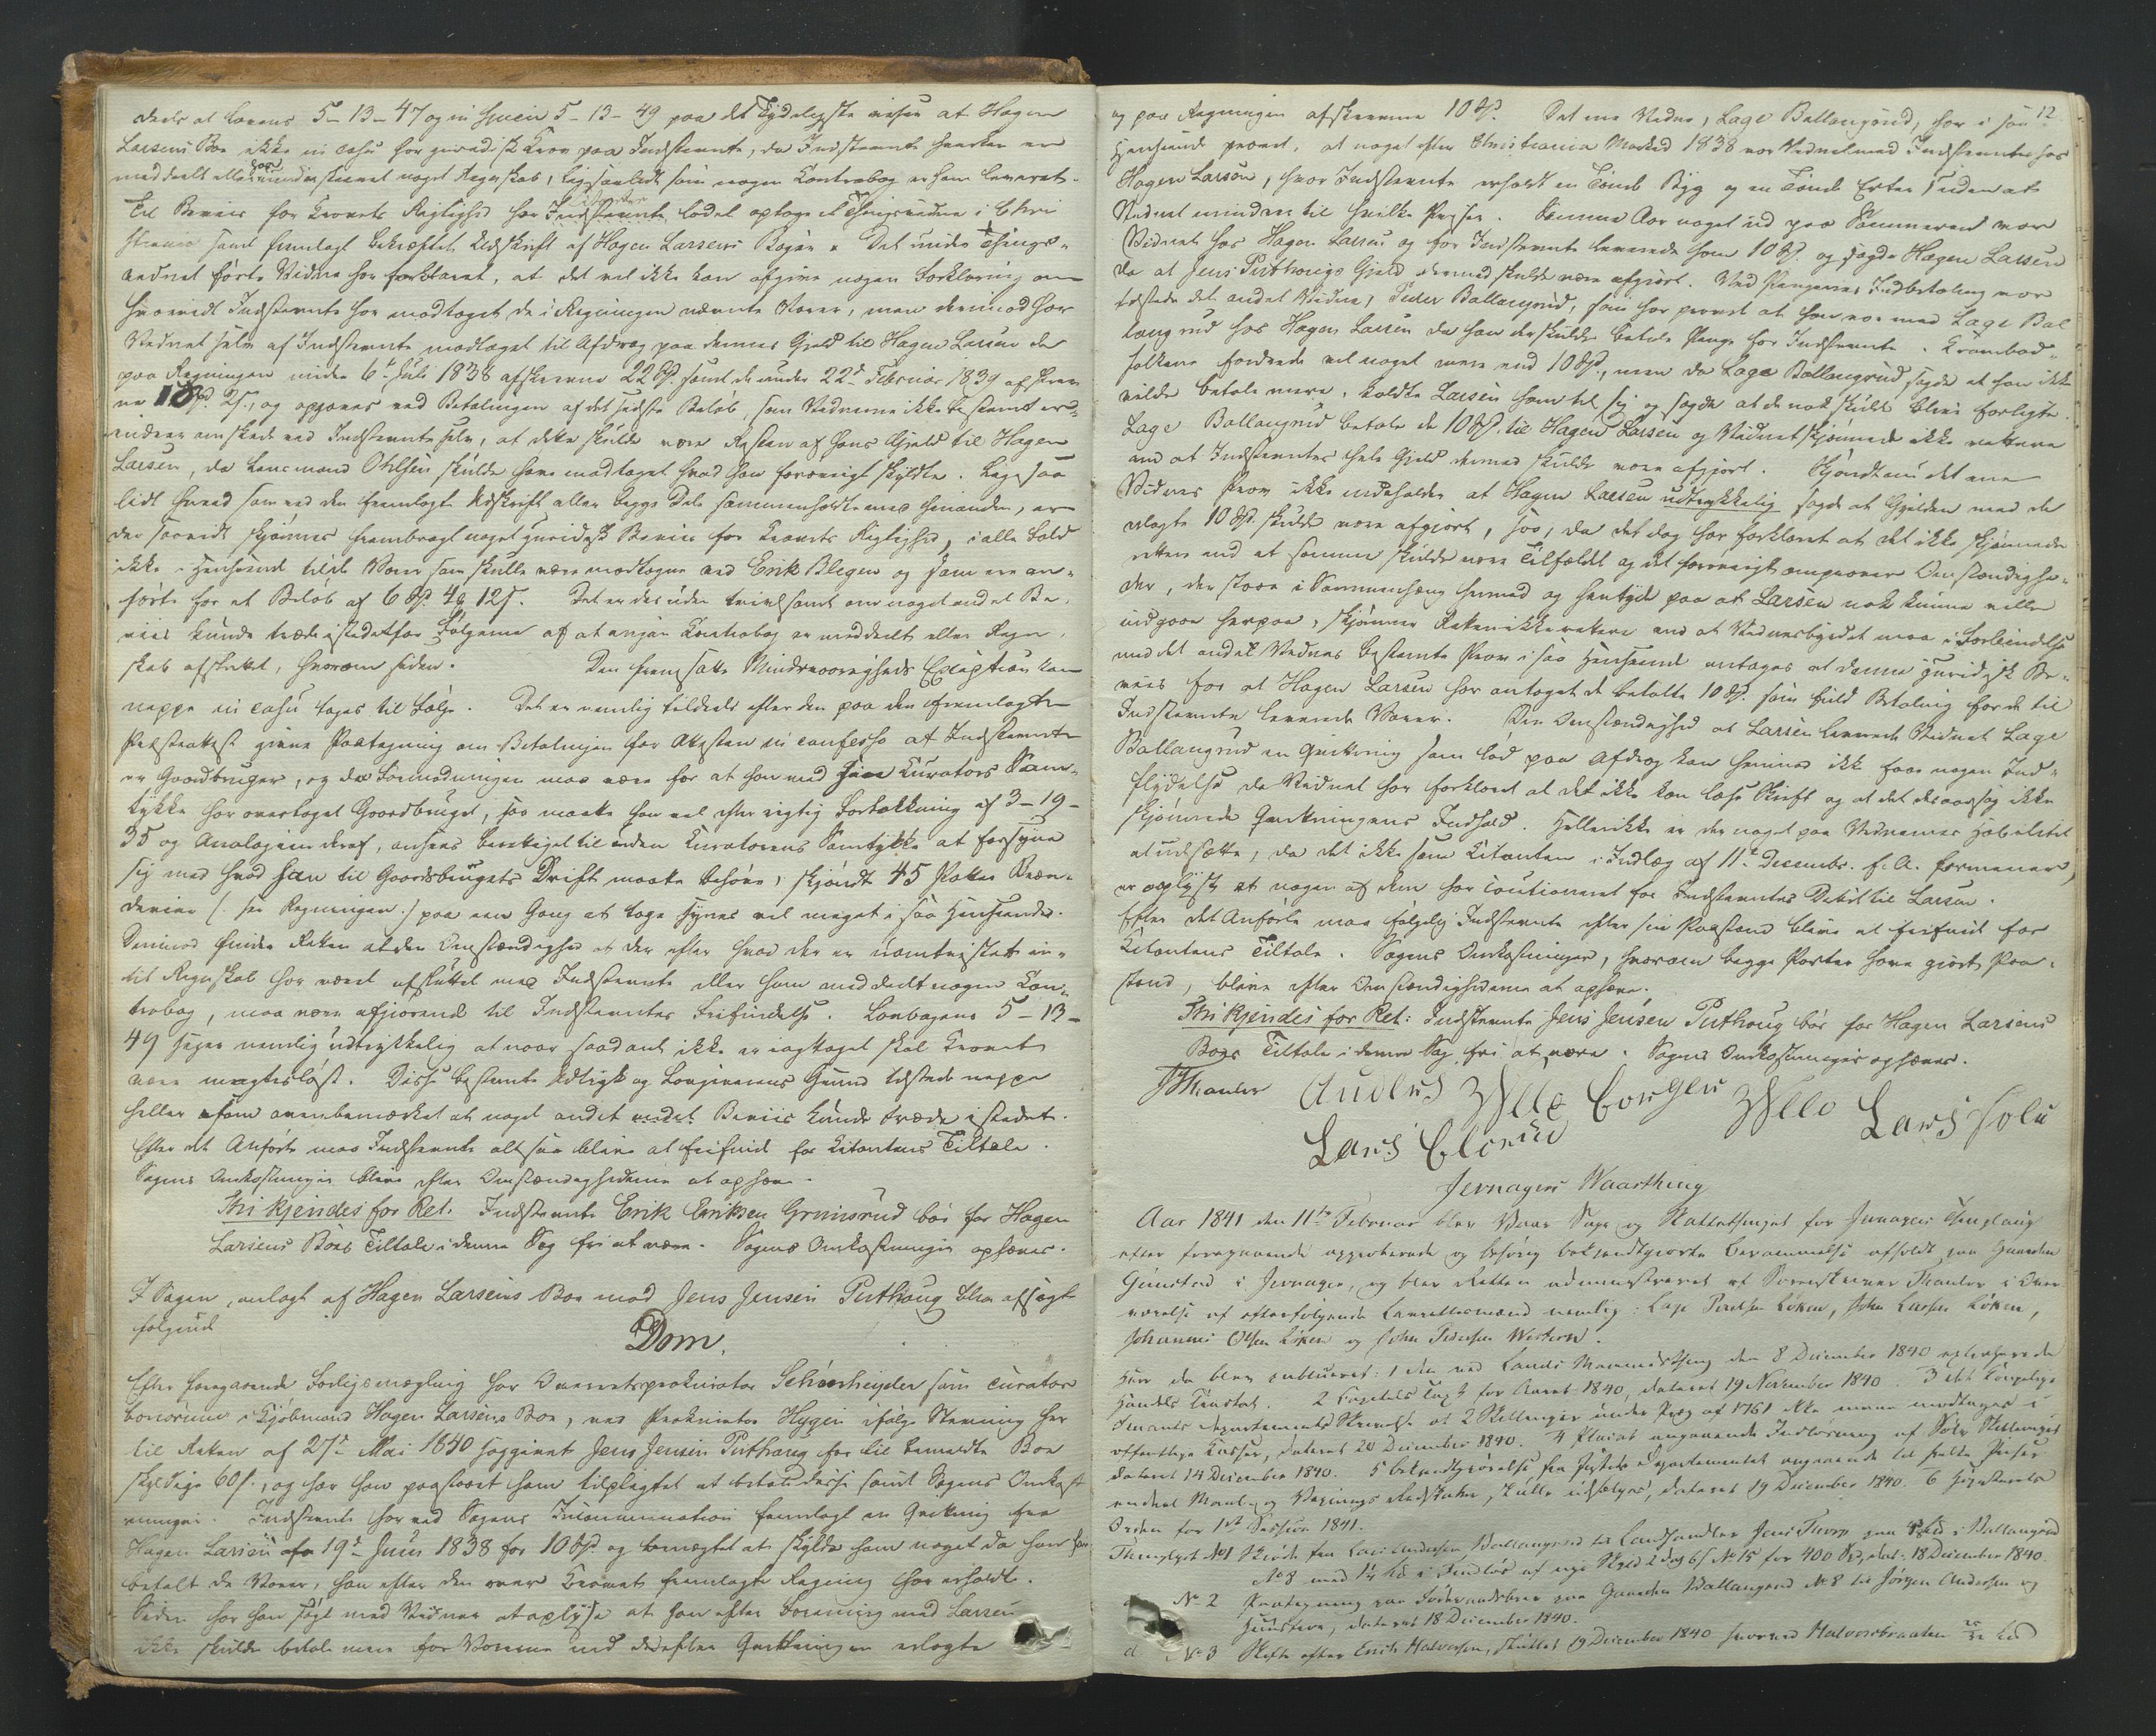 deels at Lovens 5-13-47 og in specie 5-13-49 paa det Tydeligste viser at Hagen
Larsens Boe ikke in casu har juridisk Krav paa Indstevnte, da Indstevnte hverken er
meddeelt eller han underskrevet noget Regnskab, ligesaalidt som nogen Contrabog er ham leveret.
Til Beviis for Kravets Rigtighed har Citanten ladet optage et Thingsvidne i Chri
stiania samt fremlagt bekræftet Udskrift af Hagen Larsens Bøger. Det under Things-
vidnet førte Vidne har forklaret, at det vel ikke kan afgive nogen Forklaring om
hvorvidt Indstevnte har modtaget de i Regningen nævnte Varer, men derimod har
Vidnet selv af Indstevnte modtaget til Afdrag paa dennes Gjeld til Hagen Larsen de
paa Regningen under 6te Juli 1838 afskrevne 22 Spd. samt de under 22de Februar 1839 afskrev
ne 18 Spd. 2 s., og opgaves ved Betalingen af det sidste Beløb, som Vidnerne ikke bestemt er-
indrer om skede ved Indstevnte selv, at dette skulde være Resten af hans Gjeld til Hagen
Larsen, da Lensmand Ohlsen skulde have modtaget hvad han forøvrigt skyldte. Ligesaa
lidt herved som ved den fremlagte Udskrift eller begge Dele sammenholdte med hinanden, er
der saavidt skjønnes frembragt noget juridisk Beviis for Kravets Rigtighed, i alle Fald
ikke i Henseende til de Varer som skulle være modtagne ved Erik Blegen og som ere an-
førte for et Beløb af 6 Spd. 4 12 s. Det er desuden tvivlsomt om noget andet Be-
viis kunde træde istedetfor Følgerne af at ingen Contrabog er meddeelt eller Regn-
skab afsluttet, hvorom siden. Den fremsatte Mindreaarigheds Exception kan
neppe in casu tages til Følge. Det er nemlig tildeels efter den paa den fremlagte
Præsteattest givne Paategning om Betalingen for Attesten in confesso at Indstevnte
er Gaardbruger, og da Formodningen maa være for at han med sin Curators Sam-
tykke har overtaget Gaardbruget, saa maatte han vel efter rigtig Fortolkning af 3-19-
35 og Analogien deraf, ansees berettiget til uden Curatorens Samtykke at forsyne
sig med hvad han til Gaardsbrugets Drift maatte behøve, skjøndt 45 Potter Bræn-
deviin (: see Regningen :) paa een Gang at tage synes vel meget i saa Henseende.
Derimod finder Retten at den Omstændighed at der efter hvad der er uomtvistet in-
tet Regnskab har været afsluttet med Indstevnte eller ham meddeelt nogen Con-
trabog, maa være afgjørende til Indstevntes Frifindelse. Lovbogens 5-13-
49 siger nemlig udtrykkelig at naar saadant ikke er iagttaget skal Kravet
være magtesløst. Disse bestemte Udtryk og Lovgiverens Grund tilstede neppe
heller som ovenbemærket at noget andet Beviis kunde træde istedet.
Efter det Anførte maa Indstevnte altsaa blive at frifinde for Citantens Tiltale.
Sagens Omkostninger blive efter Omstændighederne at ophæve.
Thi kjendes for Ret: Indstevnte Erik Eriksen Grimsrud bør for Hagen
Larsens Boes Tiltale i denne Sag fri at være. Sagens Omkostninger ophæves.
I Sagen, anlagt af Hagen Larsens Boe mod Jens Jensen Puthaug blev afsagt
følgende
Dom.
Efter foregaaende Forligsmægling har Overretsprokurator Schønheyder som curator
bonorum i Kjøbmand Hagen Larsens Boe, ved Prokurator Hygen ifølge Stevning her
til Retten af 27de Mai 1840 sagsøgt Jens Jensen Puthaug for til bemeldte Boe
skyldige 60 s., og har han paastaaet ham tilpligtet at betale disse samt Sagens Omkost
ninger. Indstevnte har ved Sagens Incamination fremlagt en Qvittering fra
Hagen Larsen af 19de Juni 1838 for 10 Spd. og benægtet at skylde ham noget da han har
betalt de Varer, han efter den over Kravet fremlagte Regning har erholdt.
Siden har han søgt med Vidner at oplyse at han efter Forening med Larsen
ikke skulde betale mere for Varerne end de efter Qvitteringen erlagte
12
og paa Regningen afskrevne 10 Spd. Det ene Vidne, Lage Ballangrud, har i saa
Henseende provet, at noget efter Christiania Marked 1838 var Vidnet med Indstevnte hos
Hagen Larsen, hvor Indstevnte erholdt en Tønde Byg og en Tønde Erter uden at
Vidnet mindes til hvilke Priser. Samme Aar noget ud paa Sommeren var
Vidnet hos Hagen Larsen og for Indstevnte leverede ham 10 Spd. og sagde Hagen Larsen
da at Jens Puthaugs Gjeld dermed skulde være afgjort. Ved Pengenes Indbetaling var
tilstede det andet Vidne, Peder Ballangrud, som har provet at han var med Lage Bal
langrud hos Hagen Larsen da han der skulde betale Penge for Indstevnte. Krambod-
folkene fordrede vel noget mere end 10 Spd., men da Lage Ballangrud sagde at han ikke
vilde betale mere, kaldte Larsen ham til sig og sagde at de nok skulde blive forligte.
Lage Ballangrud betalte de 10 Spd. til Hagen Larsen og Vidnet skjønnede ikke rettere
end at Indstevntes hele Gjeld dermed skulde være afgjort. Skjøndt nu det ene
Vidnes Prov ikke indeholder at Hagen Larsen udtrykkelig sagde at Gjelden med de
erlagte 10 Spd. skulde være afgjort, saa, da det dog har forklaret at det ikke skjønnede
rettere end at saamme skulde være Tilfældet og det forøvrigt omprover Omstændighe-
der, der staae i Sammenhæng hermed og hentyde paa at Larsen nok kunne ville
indgaae herpaa, skjønner Retten ikke rettere end at Vidnesbyrdet maa i Forbindelse
med det andet Vidnes bestemte Prov i saa Henseende antages at danne juridisk Be-
viis for at Hagen Larsen har antaget de betalte 10 Spd. som fuld Betaling for de til
Indstevnte leverede Varer. Den Omstændighed at Larsen leverede Vidnet Lage
Ballangrud en Qvittering som lød paa Afdrag kan herimod ikke faae nogen Ind-
flydelse da Vidnet har forklaret at det ikke kan læse Skrift og at det desaarsag ikke
skjønnede Qvitteringens Indhold. Hellerikke er der noget paa Vidnernes Habilitet
at udsætte, da det ikke som Citanten i Indlæg af 11te Decembr. f. A. formener,
er oplyst at nogen af dem har cautioneret for Indstevntes Debet til Larsen.
Efter det Anførte maa følgelig Indstevnte efter sin Paastand blive at frifinde for
Citantens Tiltale. Sagens Omkostninger, hvorom begge Parter have gjort Paa-
stand, blive efter Omstændighederne at ophæve.
Thi kjendes for Ret: Indstevnte Jens Jensen Puthaug bør for Hagen Larsens
Boes Tiltale i denne Sag fri at være. Sagens Omkostninger ophæves.
Thaulow Anders
Lars Lars
Jevnagers Vaarthing
Aar 1841 den 11te Februar blev Vaar Sage og Skattethinget for Jevnagers Thinglaug
efter foregaaende approberede og behørig bekjendtgjorte Berammelse afholdt paa Gaarden
Grinstad i Jevnager, og blev Retten administreret af Sorenskriver Thaulow i Over
værelse af efterfølgende Laurettesmænd nemlig: Lage Pedersen Løken, John Larsen Løken,
Johannes Olsen Løken og John Pedersen Western.
Hvor da blev publiceret: 1 den ved Lands Mandats den 8 December 1840 
Handels Tractat. 2 Capitels Taxt for Aaret 1840, dateret 19 November 1840. 3 det Kongelige
Finants Departements Skrivelse at 2 Skillinger under Præg af 1761 ikke maae modtages i
offentlige Kasser, dateret 20 December 1840. 4 Placat angaaende Indløsning af Sølv Skillemynt
dateret 14 December 1840. 5 Bekjendtgjørelse fra Justits Departementet angaaende til hvilke Priser
endeel Maal- og Veinings Redskaber, skulle udsælges, dateret 19 December 1840. 6 Høiesterets
Orden for 1ste Session 1841.
Thinglyst No 1 Skjøde fra Lars Andersen Ballangrud til Landhandler Jens Thorp paa i Ballangrud
No 8 med af nye Skyld 2 Ort 6 s No 15 for 400 Spd, dat. 18 December 1840.
No 2 Paategning paa Føderaadsbrev paa Gaarden Ballangrud No 8 til Jørgen Andersen og
Hustrue, dateret 18 December 1840.
No 3 Skifte efter Erich Halvorsen, sluttet 19 December 1840 hvorved Halvorsbraaten